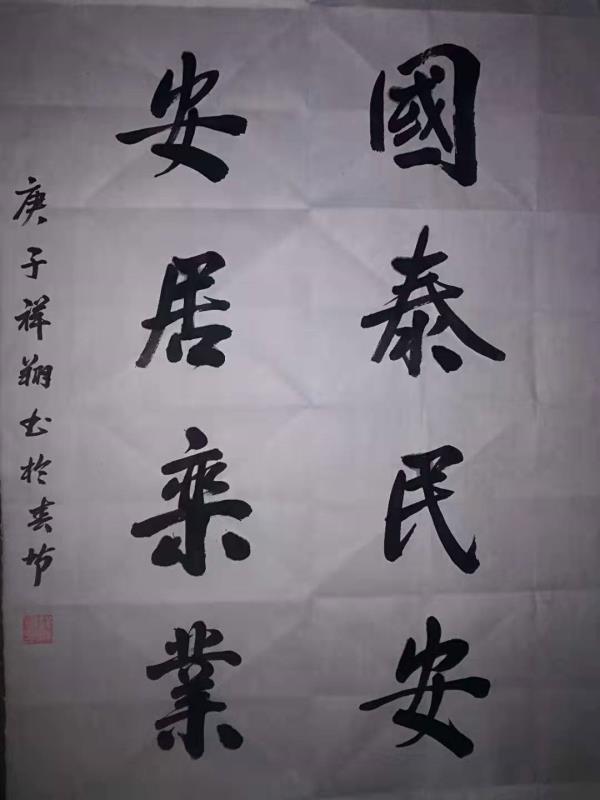 國泰民安
安居樂業
庚子祥翔书於春节